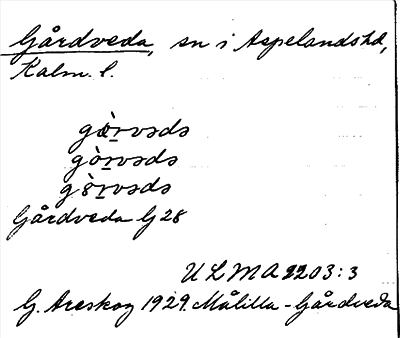 Gårdveda, sn i Aspelands hd,
Kalm. l.
gæ̀rvədə
gòrvədə
gɵ̀rvədə
Gårdveda G 28
ULMA 2203:3
G. Areskog 1929. Målilla - Gårdveda